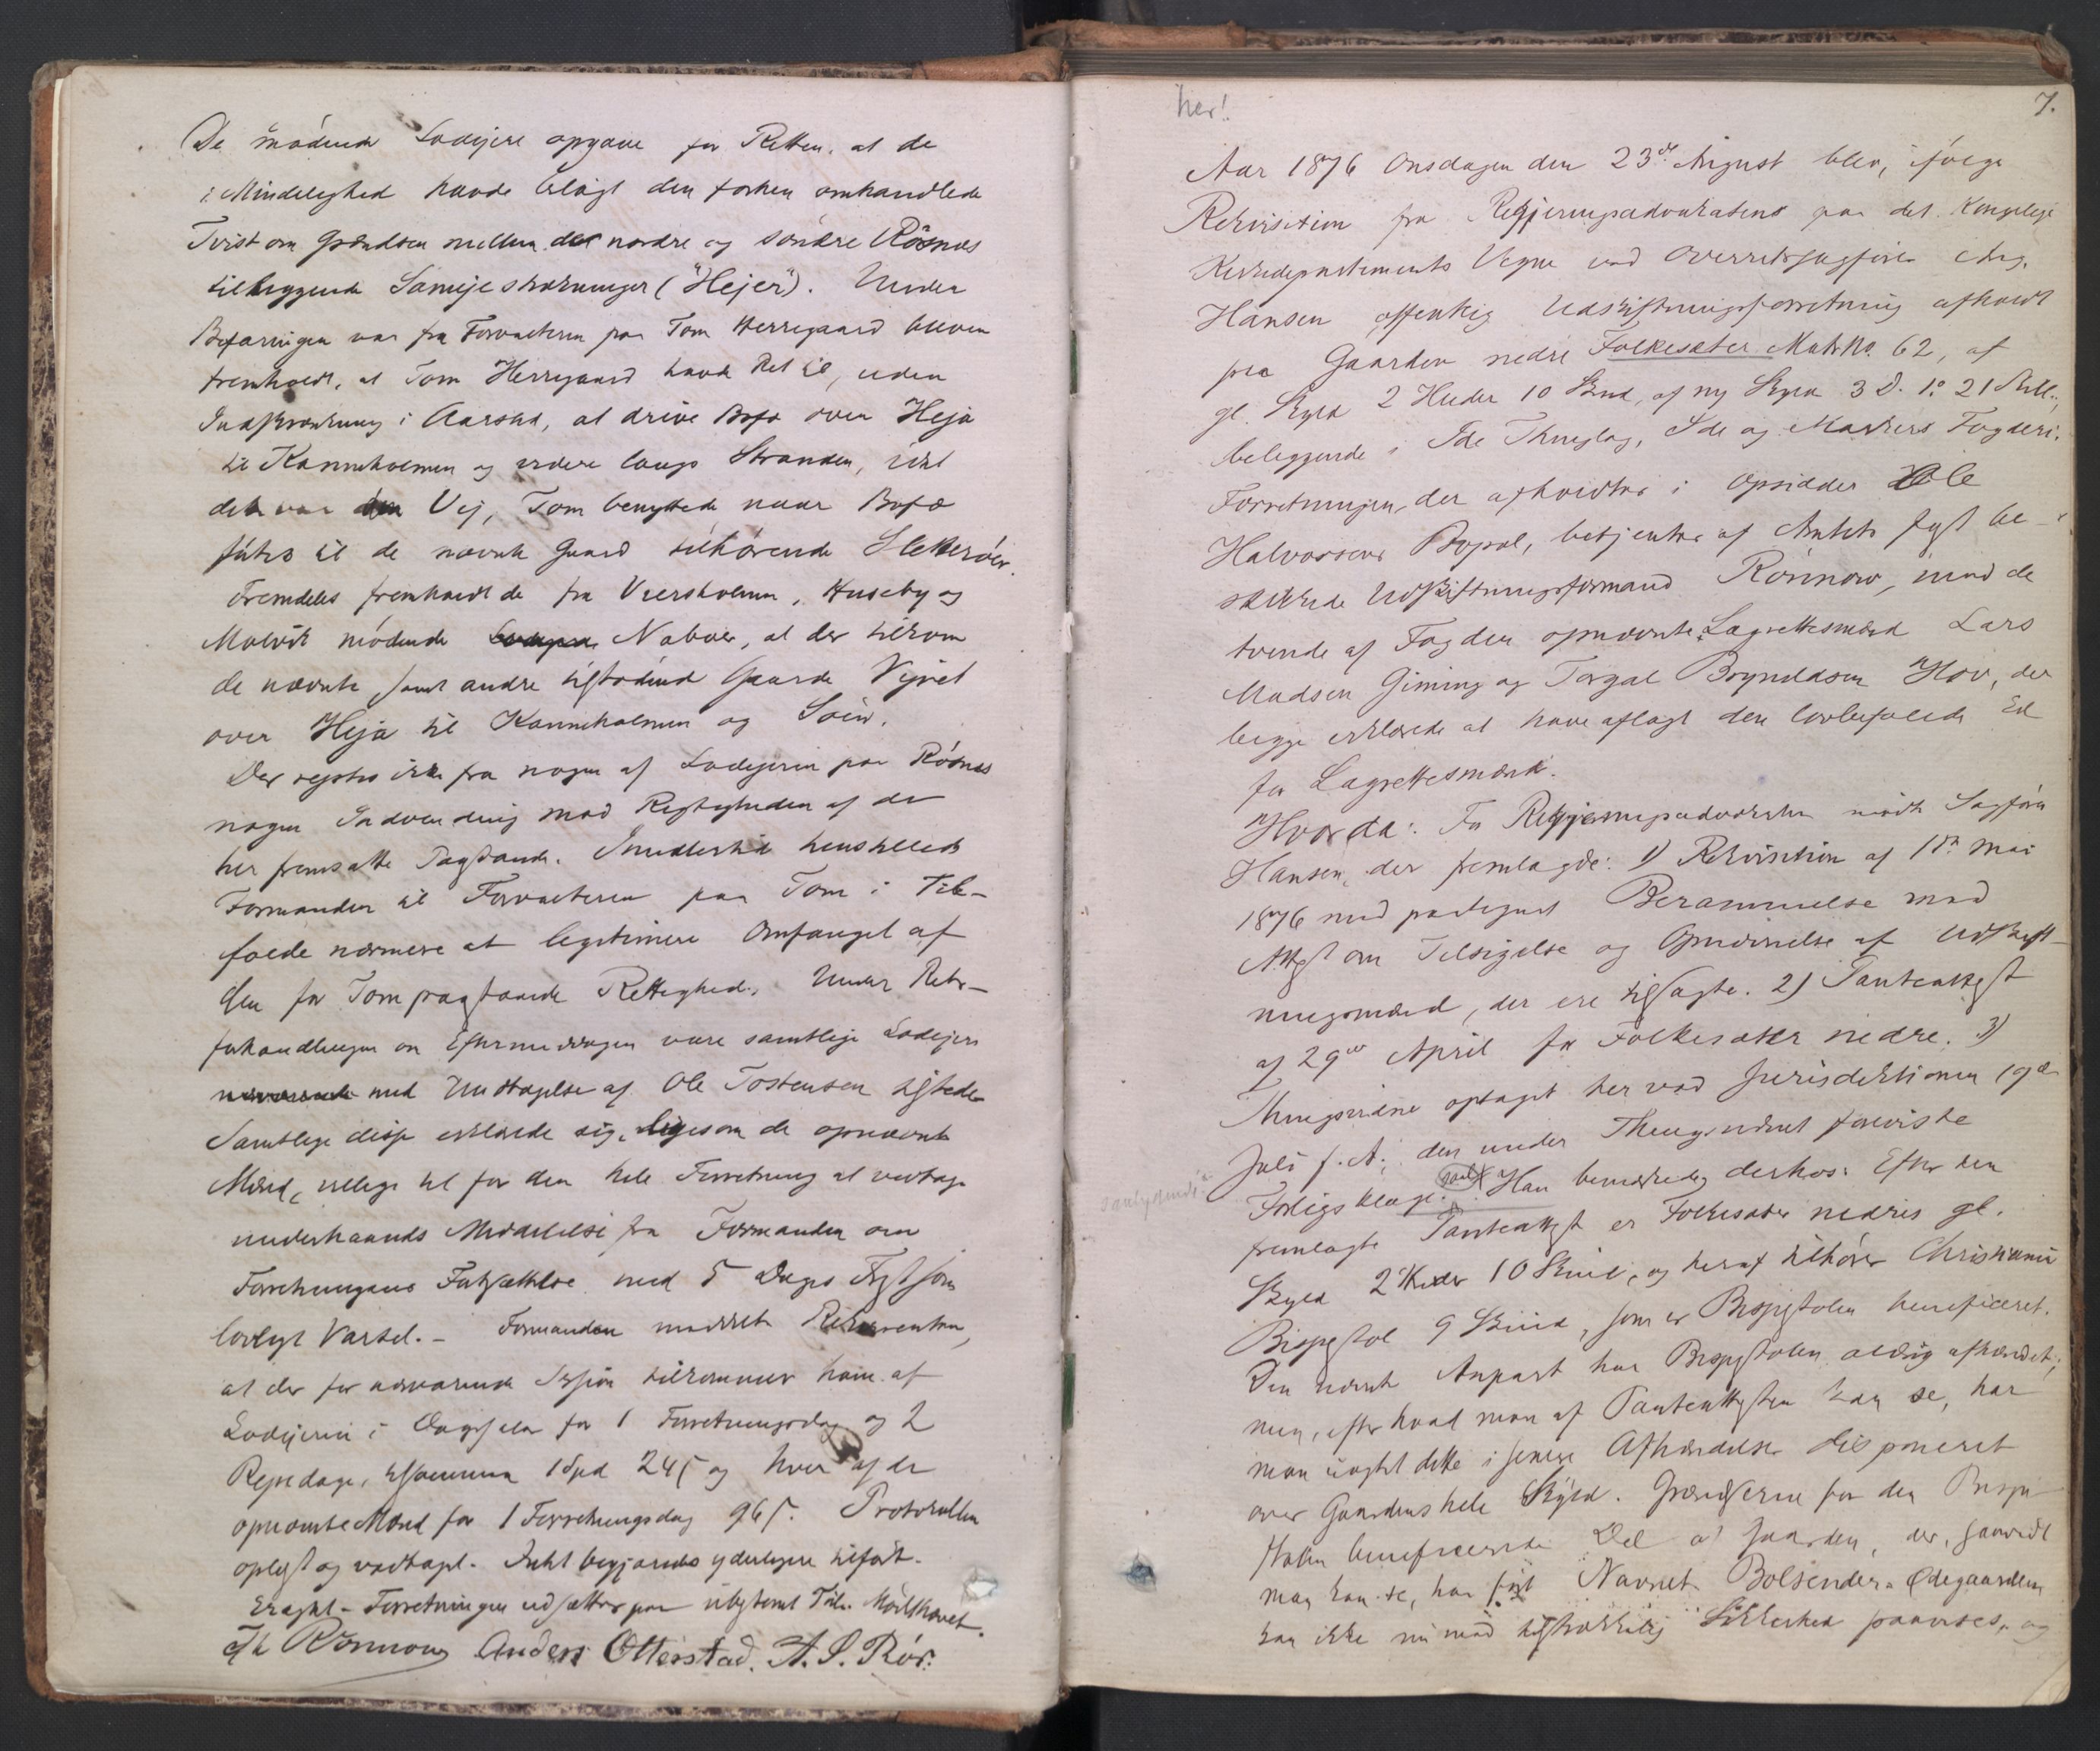 De mødende Lodejere opgave for Retten, at de
i Mindelighed havde bilagt den forhen omhandlede
Tvist om Grændsen mellem det nordre og søndre Rösnæs
tilliggende Sameje strækninger ("Hejer"). Under
Befaringen var fra Forvalteren paa Tom Herregaard bleven
fremholdt, at Tom Herregaard havde Ret til, uden
Indskrænkning i Aarstid, at drive Bufæ over Heja
til Kanneholmen og videre langs Stranden, idet
det var den Vej, Tom benyttede naar Bufæ
føres til de nævnte Gaard tilhørende Sletterøer.
Fremdeles fremholdt de fra Huseby og
mødende Naboer, at der tilkom
de nævnte samt andre tilstødend Gaarde Vejret
over Heja til Kanneholmen og Søen.
Der rejstes ikke fra nogen af Lodejerne paa Rösnæs
nogen Indvending mod Rigtigheden af de
her fremsatte Paastande. Imidlertid henstillede
Formanden til Forvalteren paa Tom i Til-
fælde nærmere at legitimere Omfanget af
den for Tom paastaaede Rettighed. Under Rets-
forhandlingen om Eftermiddagen vare samtlige Lodejere
nærværende med Undtagelse af Ole Tostensen tilstede
Samtlige disse erklærede sig, ligesom de opnævnte
Mænd, villige til for den hele Forretning at vedtage
underhaands Meddelelse fra Formanden om
Forretningens Fortsættelse med 5 Dages Frist som
lovligt Varsel. - Formanden mærket Rekvirenten,
at der for nærværende Session tilkommer ham af
Lodejerne i Dagpenge for 1 Forretningsdag og 2
Rejsedage, tilsammen 1 Spd 24 s og hver af de
opnævnte Mænd for 1 Forretningsdag 96 s. Protokollen
oplæst og vedtaget. Intet begjæredes yderligere tilført.
Eragtet - Forretningen udsættes paa ubestemt Tid. Mødet hævet.
Th Rönnow Anders Otterstad. A. S. Rör.
her!
7.
Aar 1876 Onsdagen den 23de August blev, ifølge
Rekvisition fra Regjeringsadvokatens paa det Kongelige
Kirkedepartements Vegne ved Overretssagfører Chr.
Hansen offentlig Udskiftningsforretning afholdt
paa Gaarden nedre Folkesæter Matr. No. 62, af
gl. Skyld 2 Huder 10 Skind, af ny Skyld 3 D. 1 o 21 Skill.,
beliggende i Ide Thinglag, Ide og Markers Fogderi.
Forretningen, der afholdtes i Opsidder Ole
Halvorsens Bopæl, betjentes af Amtets fast be-
skikkede Udskiftningsformand Rönnow, med de
tvende af Fogden opnævnte Lagrettesmænd Lars
Madsen Giming og Torgal Brynildsen Hov, der
begge erklærede at have aflagt den lovbefalede Ed
for Lagrettesmænd.
Hvorda: For Regjeringsadvokaten mødte Sagfører
Hansen, der fremlagde: 1) Rekvisition af 18de Mai
1876 med paategnet Berammelse med
Attest om Tilsigelse og Opnævnelse af Udskift-
ningsmænd, der ere tilsagte. 2) Panteattest
af 29de April for Folkesæter nedre. 3)
Thingsvidne optaget her ved Jurisdiktionen 19de
Juli f. A.; den under Thingsvidnet foreviste
Forligsklage. Han bemærkede derhos: Efter den
fremlagte Panteattest er Folkesæter nedres gl.
Skyld 2 Huder 10 Skind, og heraf tilhører Christiania
Bispestol 9 Skind, som er Bispestolen beneficeret.
Den nævnte Anpart har Bispestolen aldrig afhændet;
men, efter hvad man af Panteattesten kan se, har
man uagtet dette i senere Afhændelser disponeret
over Gaardens hele Skyld. Grændserne for den Bispe-
stolen beneficerede Del af Gaarden, der, saavidt
man kan se, har ført Navnet Bolsender-Ødegaarden,
kan ikke nu med tilstrækkelig Sikkerhed paavises, og